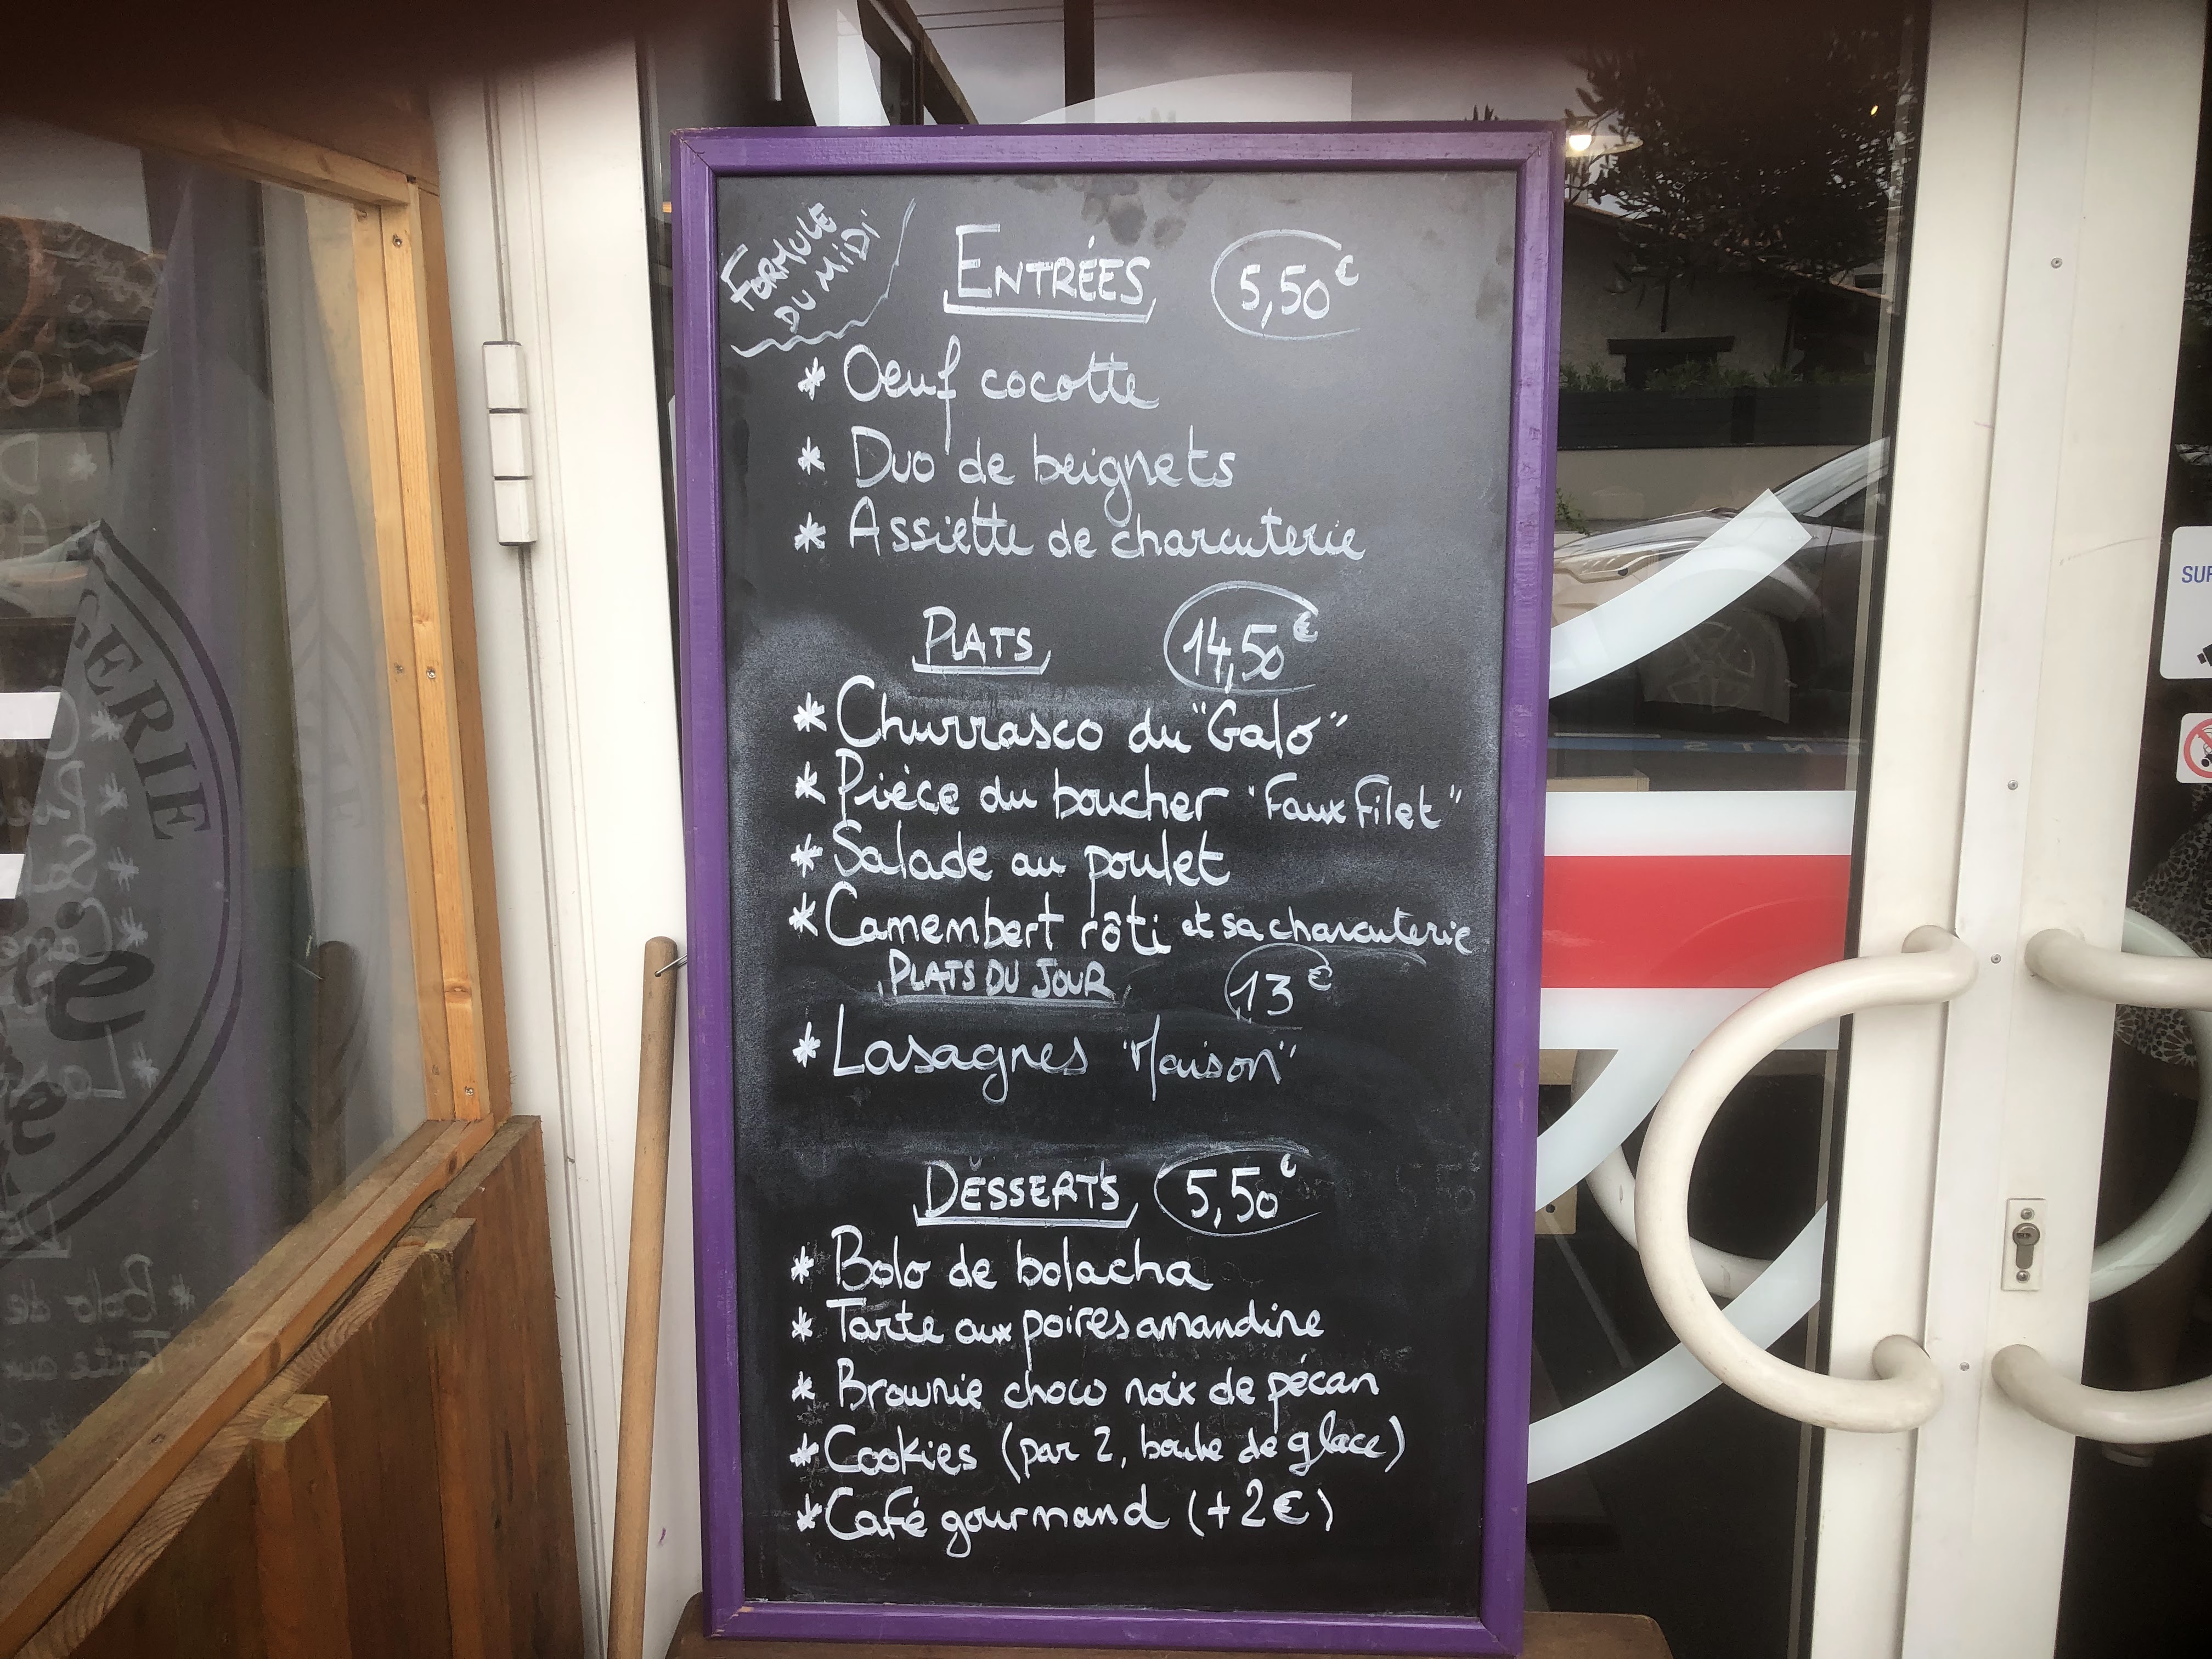 FORMULE
DU MIDI
ENTRÉES 5,50€
* Oeuf cocotte
* Duo de beignets
* Assiette de charcuterie
PLATS 14,50€
* Churrasco du "Galo"
* Pièce du boucher "Faux Filet"
* Salade au poulet
* Camembert rôti et sa charcuterie
PLATS DU JOUR 13€
* Lasagnes "Maison"
DESSERTS 5,50€
* Bolo de bolacha
* Tarte aux poires amandine
* Brownie choco noix de pécan
* Cookies (par 2, boule de glace)
* Café gourmand (+2€)
GERIE
SUR